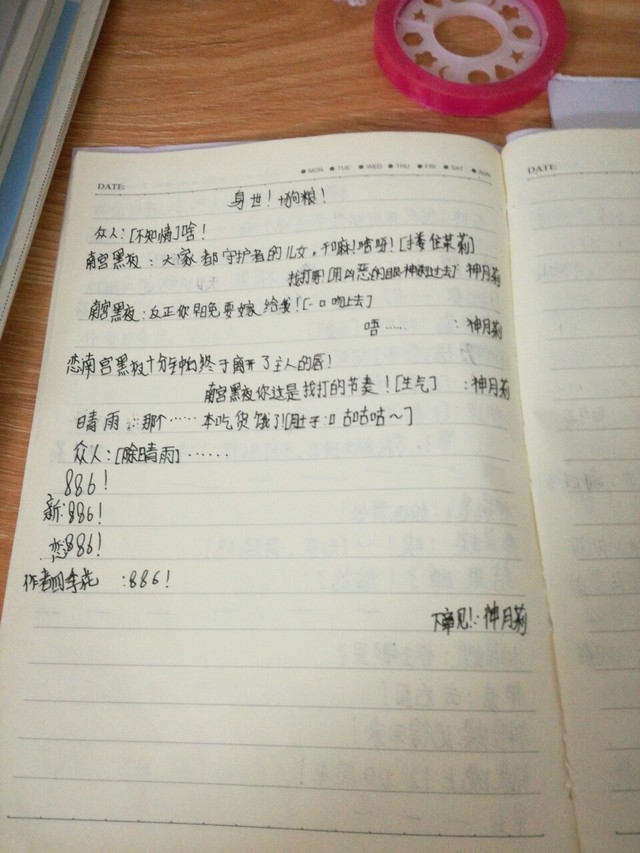 DATE:
MON TUE WED THU FRI SAT SUN
DATE:
身世!狗粮!
众人:[不知情]啥!
南宫黑夜:大家都守护者的儿女,干嘛!啥呀![搂住某莉]
找打哥![用凶恶的眼神甩过去] 神月莉
南宫黑夜:反正你早晚要嫁给我![一口吻上去]
唔…… :神月莉
恋南宫黑夜十分钟后终于离开了主人的唇!
南宫黑夜你这是找打的节奏![生气] :神月莉
晴雨:那个……本吃货饿了![肚子:咕咕咕~]
众人:[除晴雨]……
886!
新:886!
恋886!
作者四季花 :886!
下章见!:神月莉